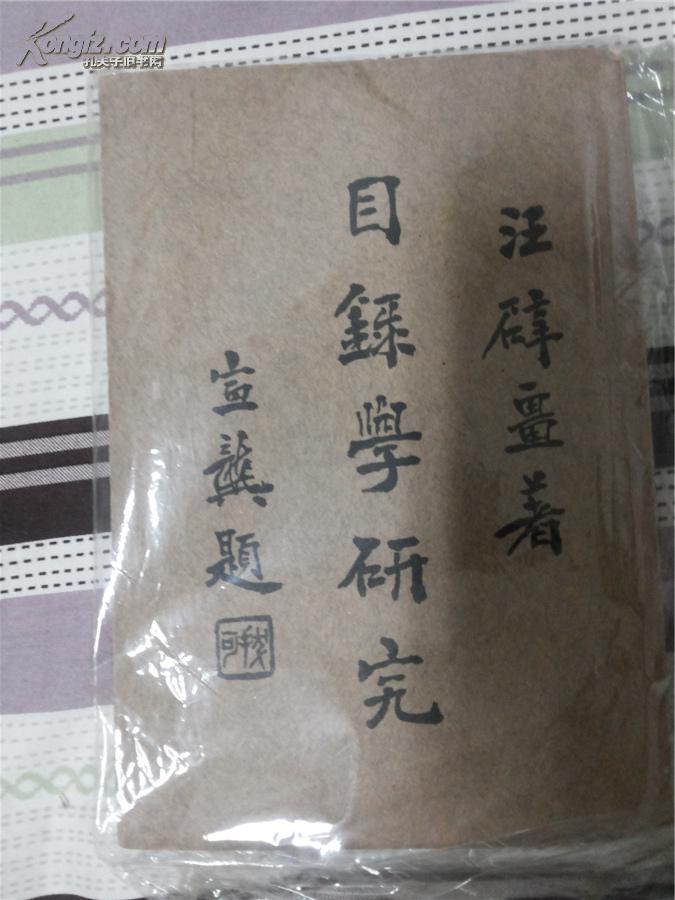 Kongfz.com
孔夫子旧书网
汪辟畺著
目錄學研究
宣龔題